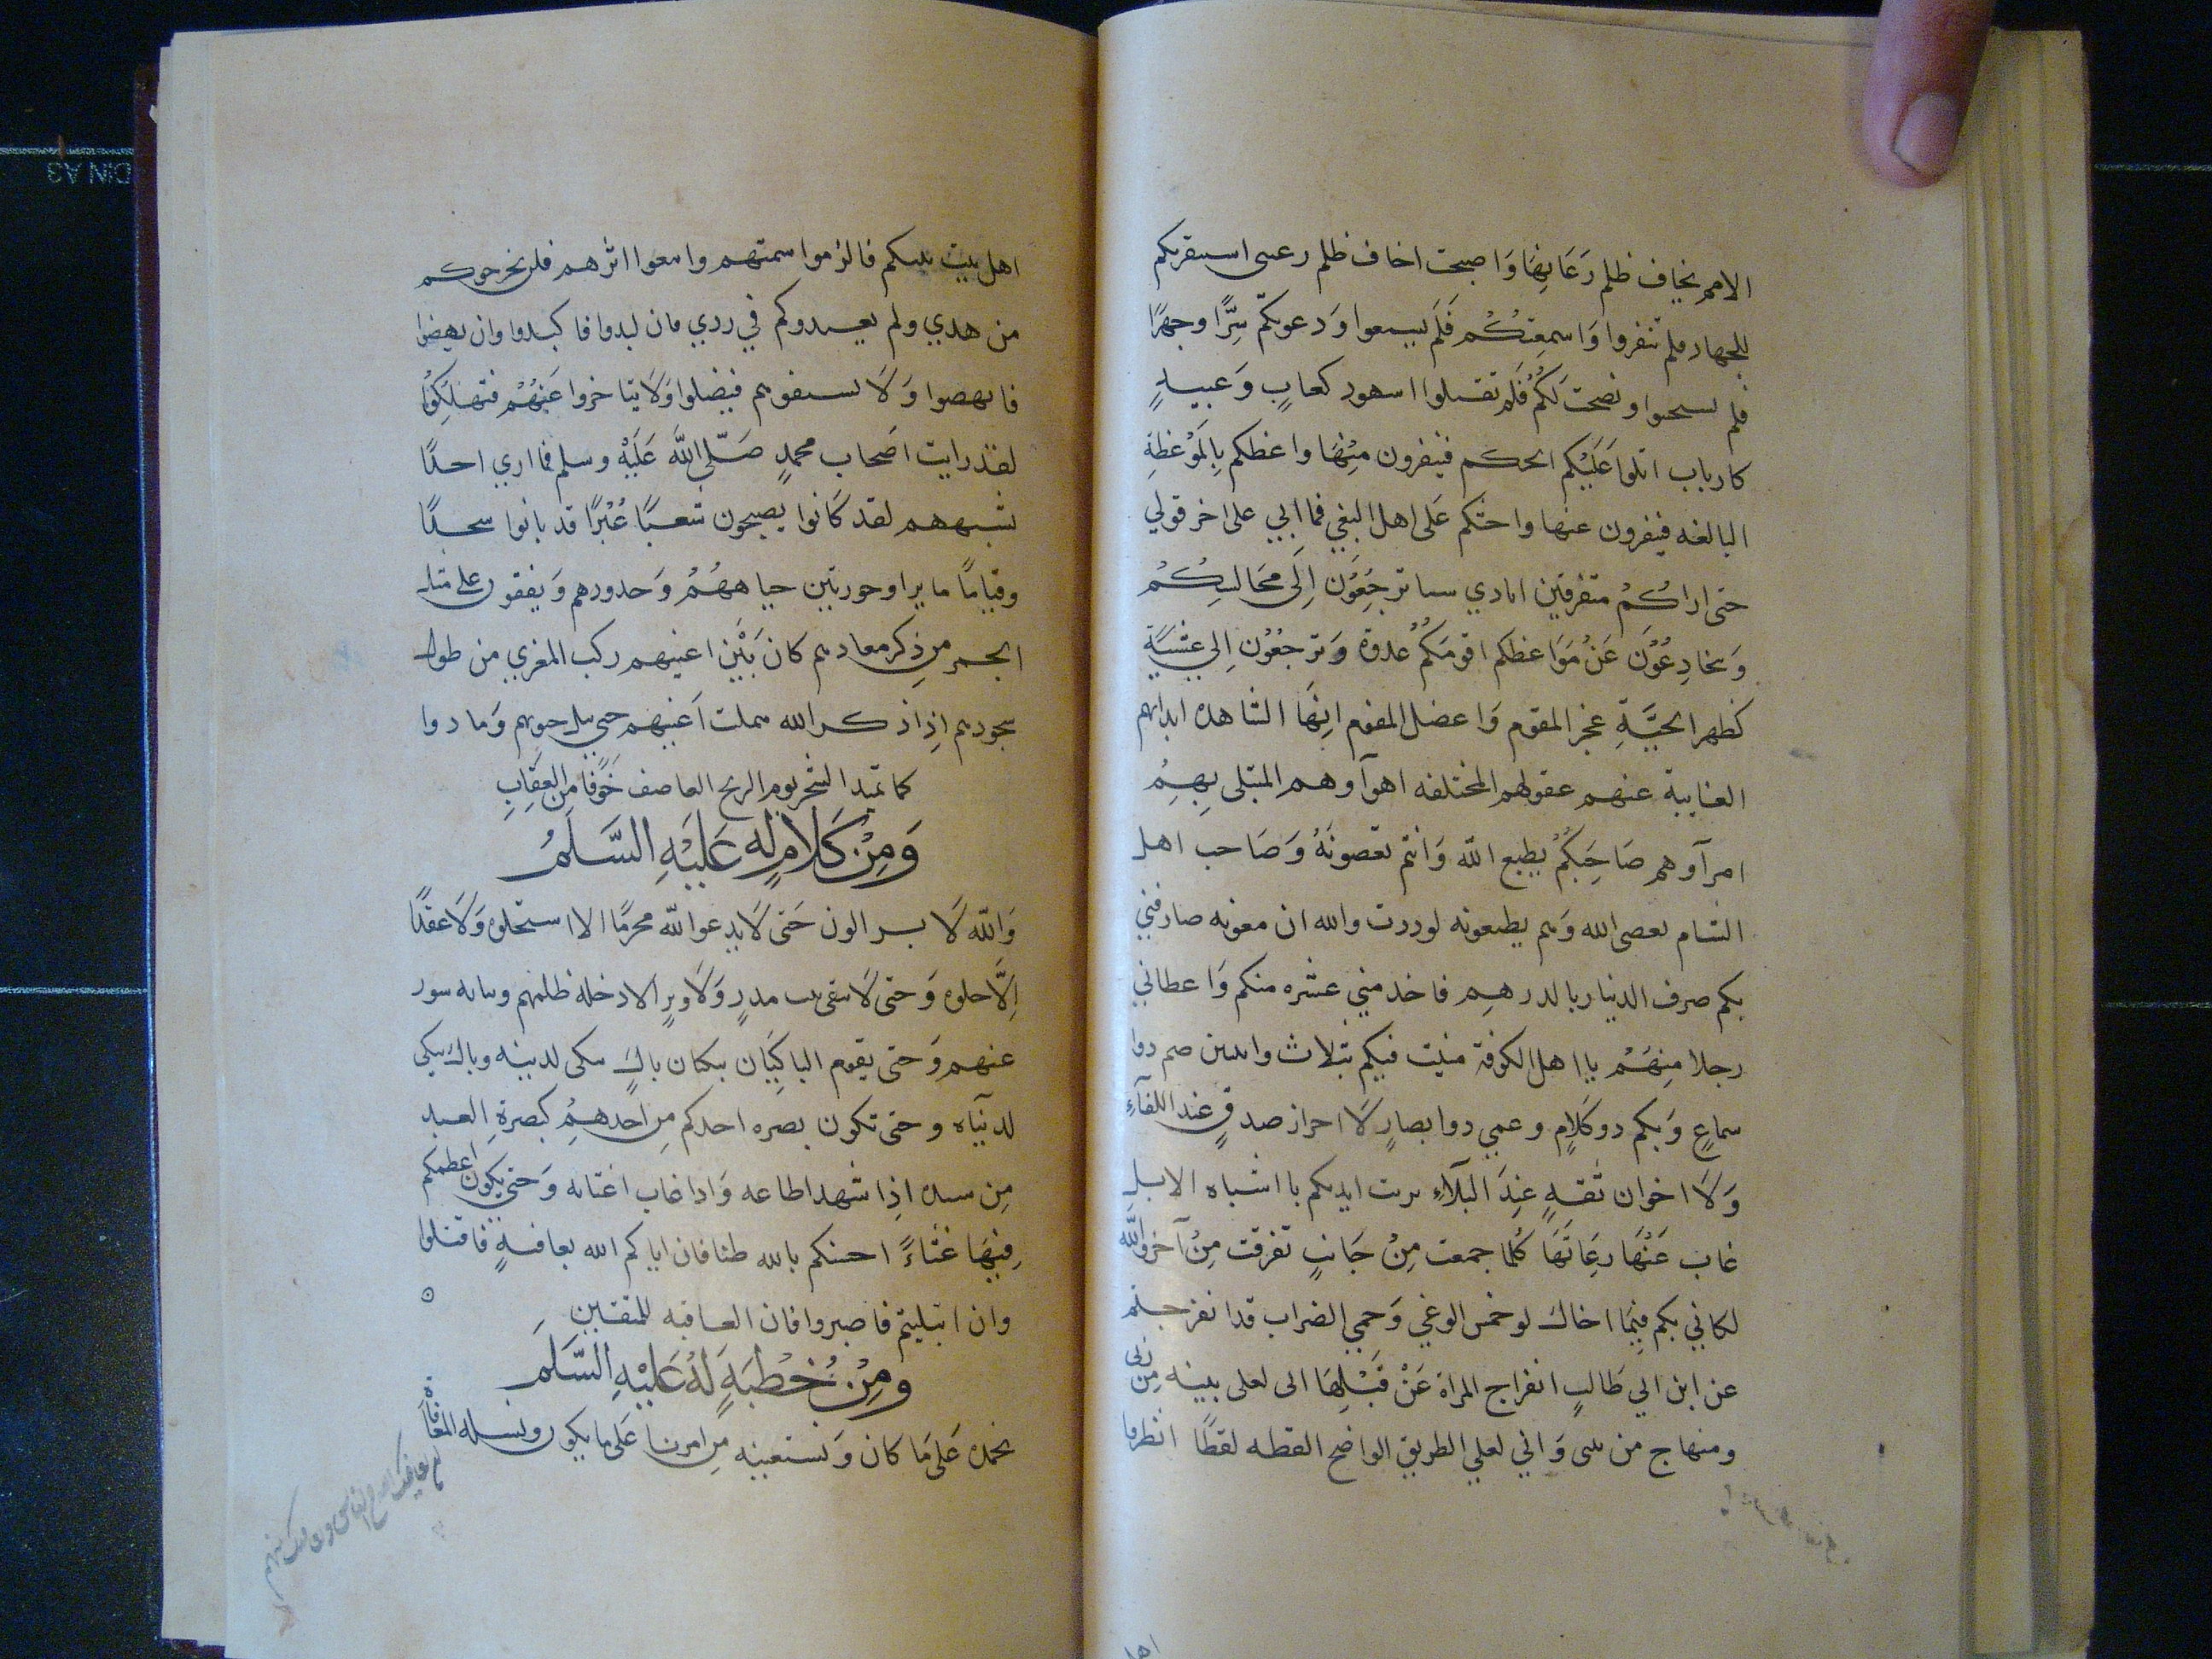 الامم تخاف ظلم رَعَاتِهَا وَاصبحت اخاف ظلم رعىى استنفرتكم
للجهاد فلم تنفروا وَاسمعتكُم فَلَم تسمعوا وَدعوتكم سِرًّا وجهرًا
فلم تستجيبوا ونصحت لَكُم فَلم تقبلوا اشهود كغابٍ وَعبيدٍ
كارباب اتلوا عَلَيكم الحكم فتنفرون مِنهَا واعظكم بِالمَوْعظَةِ
البالغه فتفرقون عنها واحثكم عَلى اهل البغي فما اتي على اخر قولي
حتى اراكُم متفرقين ايادي سبا ترجِعُوْن اِلَى مجَالسِكُم
وَتخادِعُوْن عَنْ مَوَاعظكم اقومَكُم غُدوة وَترجعُوْن اِلي عشيَّةٍ
كظهر الحيَّةِ عجز المقوم وَاعضل المقوم ايهَا الشاهده ابدانهم
الغايبة عنهم عقولهم المختلفه اهوآوهم المبتلى بِهِمْ
امرآوهم صَاحِبكُم يطيع الله وَانتم تعصونَهُ وَصَاحب اهل
الشام يعصى الله وَهم يطيعونه لوددت والله ان معويه صارفني
بكم صرف الدينار بالدرهم فاخذ مني عشره منكم وَاعطاني
رجلا مِنهُم يا اهل الكوفة منيت فيكم بثلاث واثنين صم ذوا
سماعٍ وَبكم ذو كَلامٍ وعمي ذوا بصارٍ لَا احراز صدقٍ عند اللقآءِ
وَلَا اخوان ثقةٍ عِندَ البَلآءِ تربت ايديكم يا اشباه الابل
غاب عَنْهَا رعَاتهَا كُلما جمعت مِنْ جَانبٍ تفرقت مِنْ آخر واللّه
لكاني بكم فِيمَا اخال لو حمس الوغي وَحمي الضراب قد انفرجتم
عن ابن ابي طَالبٍ انفراج المراة عَنْ قَبْلِهَا اني لعلى بينه مِن ربي
ومنهاج من نبيى وَاني لعلي الطريق الواضح القطه لقطًا انظروا
اهل
اهل بيت نبيكم فالزموا سمتهم واتبعوا اثرهم فلن يخرجوكم
من هدي ولم يعيدوكم في ردي فان لبدوا فالبدوا وان نهضوا
فانهضوا وَلَا تسبقوهم فتضلوا وَلَا تتاخروا عَنهُم فتهلكِوُا
لقد رايت اصَحاب محمدٍ صَلّى اللهُ عَلَيْهِ وسلم فما اري احدًا
يشبههم لقد كَانوا يصبحون شعثًا غُبْرًا قد باتوا سجدًا
وقيامًا ما يراوحون بَيْن جباههُمْ وَخدودهم وَيقفون على مثل
الجمر من ذِكر معادهم كان بَيْن اعينهم ركب المعزي من طول
سجودهم اِذا ذكر الله هملت اَعينهم حتى بل جيوبهم وَمادوا
كما تميد الشجر يوم الريح العاصف خَوفًا مِن العِقَابِ
وَمِنْ كَلَامٍ له عَلَيْهِ السَّلَمُ
وَاللّه لَا يزالون حَتى لَا يدعوا للّه محرمًا الا استحلوه وَلَا عقدًا
اِلَّا حلوه وَحتى لَا يبقى بيت مدرٍ وَلَا وبرٍ الا دخله ظلمهم
عنهم وَحتى يقوم الباكيَان يبكيان باكٍ يبكى لدينه وباك يبكي
لدنيَاه وحتى تكون نصره احدكم مِن احدهُمِ كنصرةِ العبد
مِن سيده اِذا شهد اطاعه وَاذا غاب اغتابه وَحتى يكون اعظمكم
فِيهَا غَنَاءً احسنكم بالله ظنا فان اتاكم الله بعافيةٍ فاقبلوا
وان ابتليتم فاصبروا فان العاقبه للمتقين
وَمِنْ خُطْبَةٍ لَهُ عَلَيْهِ السَّلَم
نحمده عَلى مَا كان وَنستعينه مِن امرنا عَلى ما يكون ونسله المعافاه